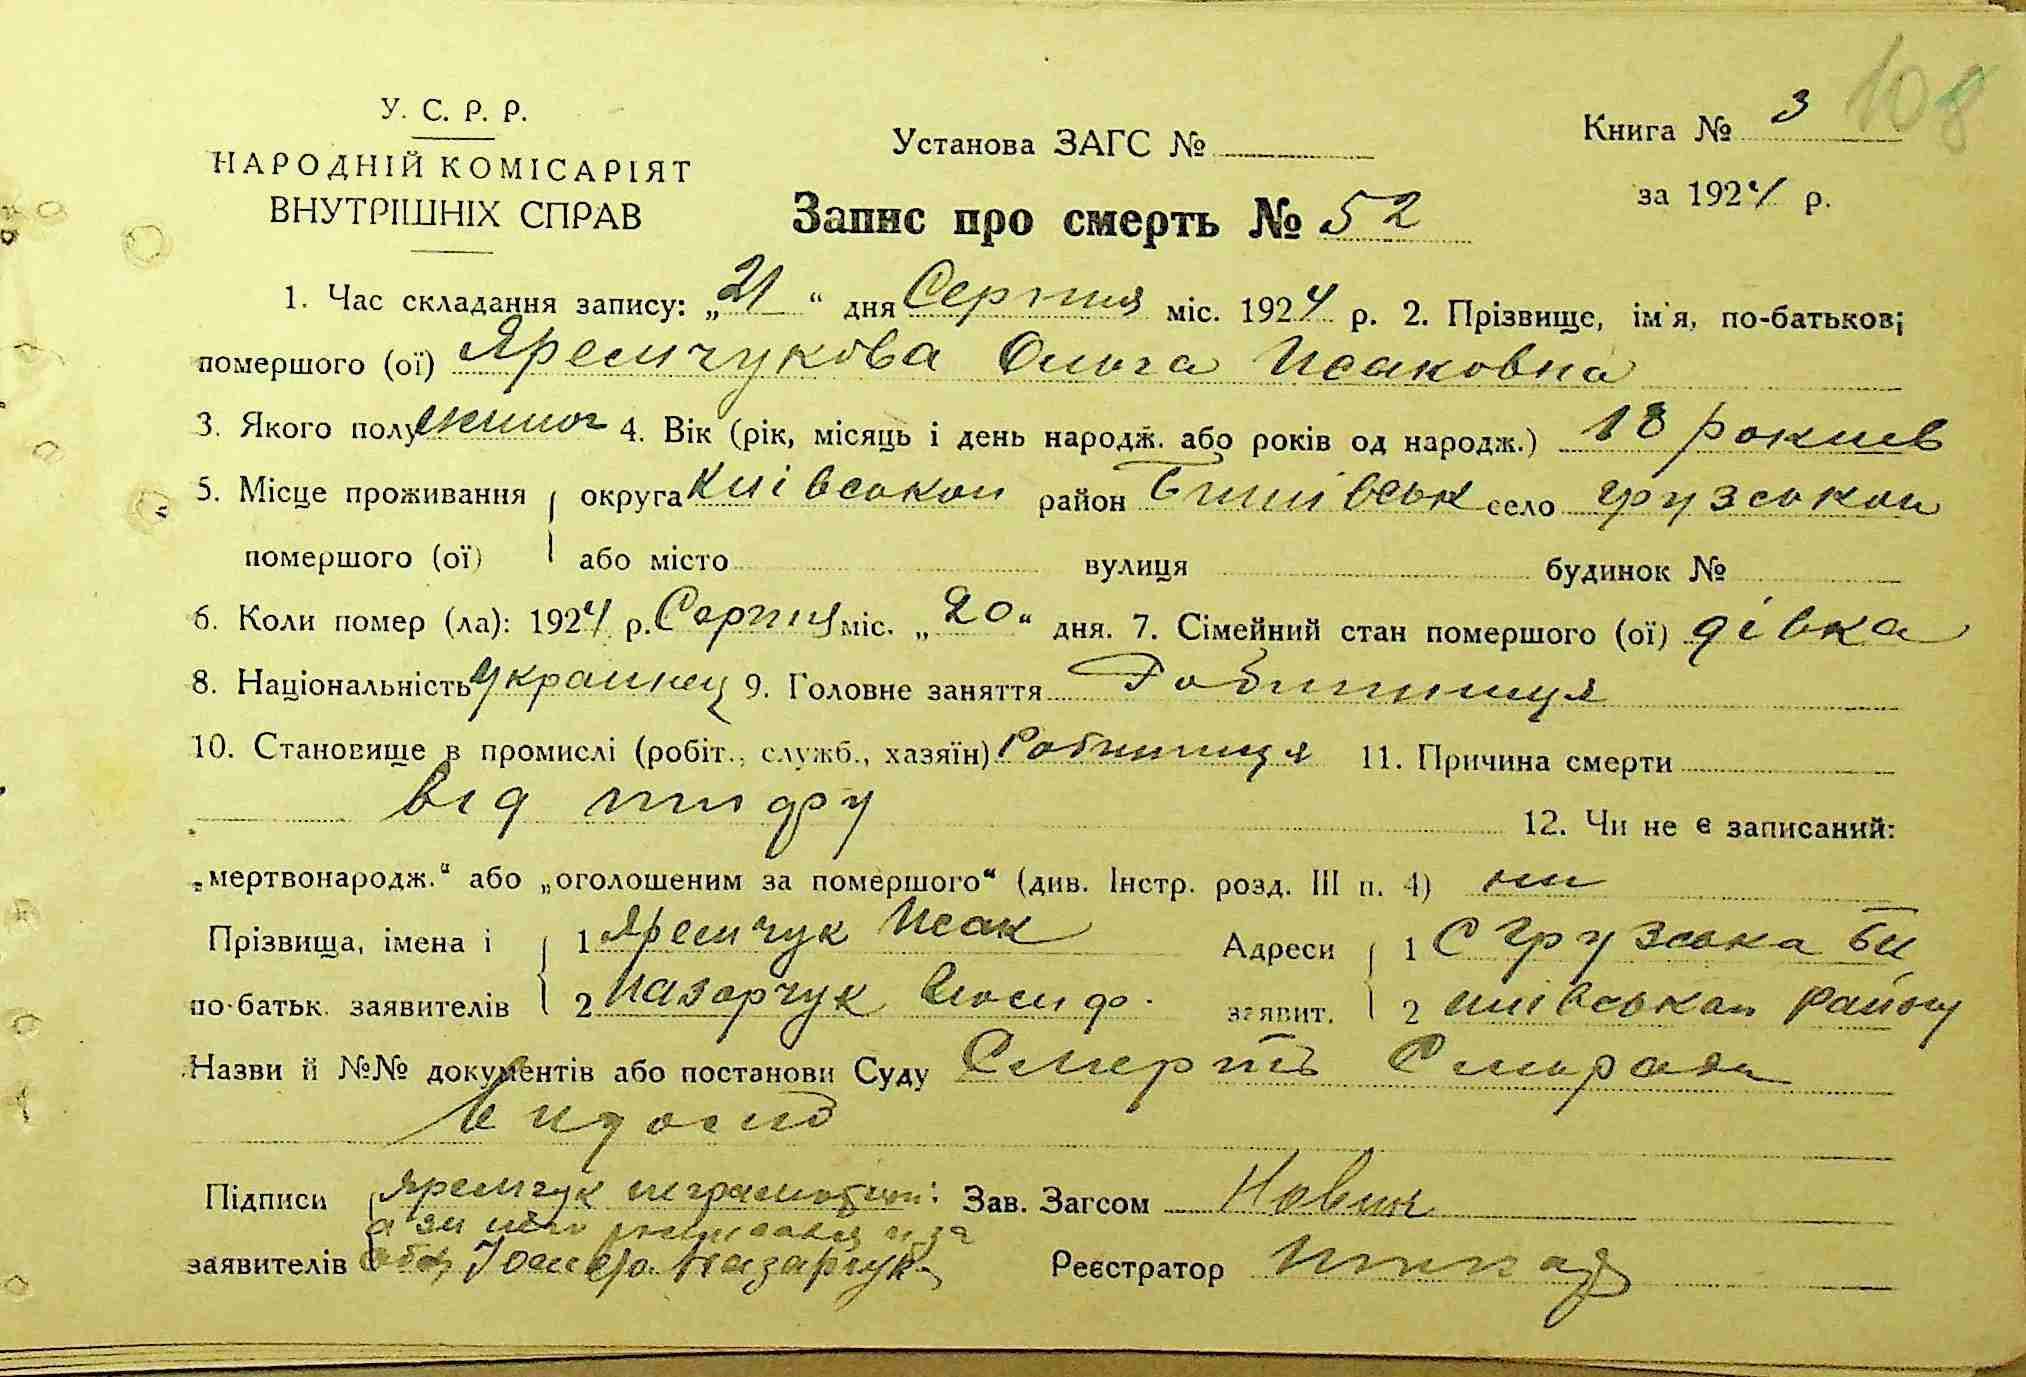 108
У. С. Р. Р.
НАРОДНІЙ КОМІСАРІЯТ
ВНУТРІШНІХ СПРАВ
Установа ЗАГС №
Книга № 3
за 1924 р.
Запис про смерть № 52
1. Час складання запису: „21“ дня Серпня міс. 1924 р. 2. Прізвище, ім'я, по-батькові
помершого (ої) Яремчукова Ольга Исаковна
3. Якого полу жиноч 4. Вік (рік, місяць і день народж. або років од народж.) 18 рокив
5. Місце проживання округа Київськои район Бишівськ село Грузськои
помершого (ої) або місто вулиця будинок №
6. Коли помер (ла): 1924 р. Серпня міс. „20“ дня. 7. Сімейний стан помершого (ої) дівка
8. Національність Украинец 9. Головне заняття Робитниця
10. Становище в промислі (робіт., служб., хазяїн) Робитниця 11. Причина смерти
від тифу
12. Чи не є записаний:
„мертвонародж.“ або „оголошеним за помершого“ (див. Інстр. розд. III п. 4) ни
Прізвища, імена і 1 Яремчук Исак Адреси 1 С Грузська Би
по-батьк. заявителів 2 Назарчук Иосиф. заявит. 2 шівськои району
Назви й №№ документів або постанови Суду Смерть
Підписи Яремчук Зав. Загсом
а за
заявителів Іосиф Назарчук Реєстратор